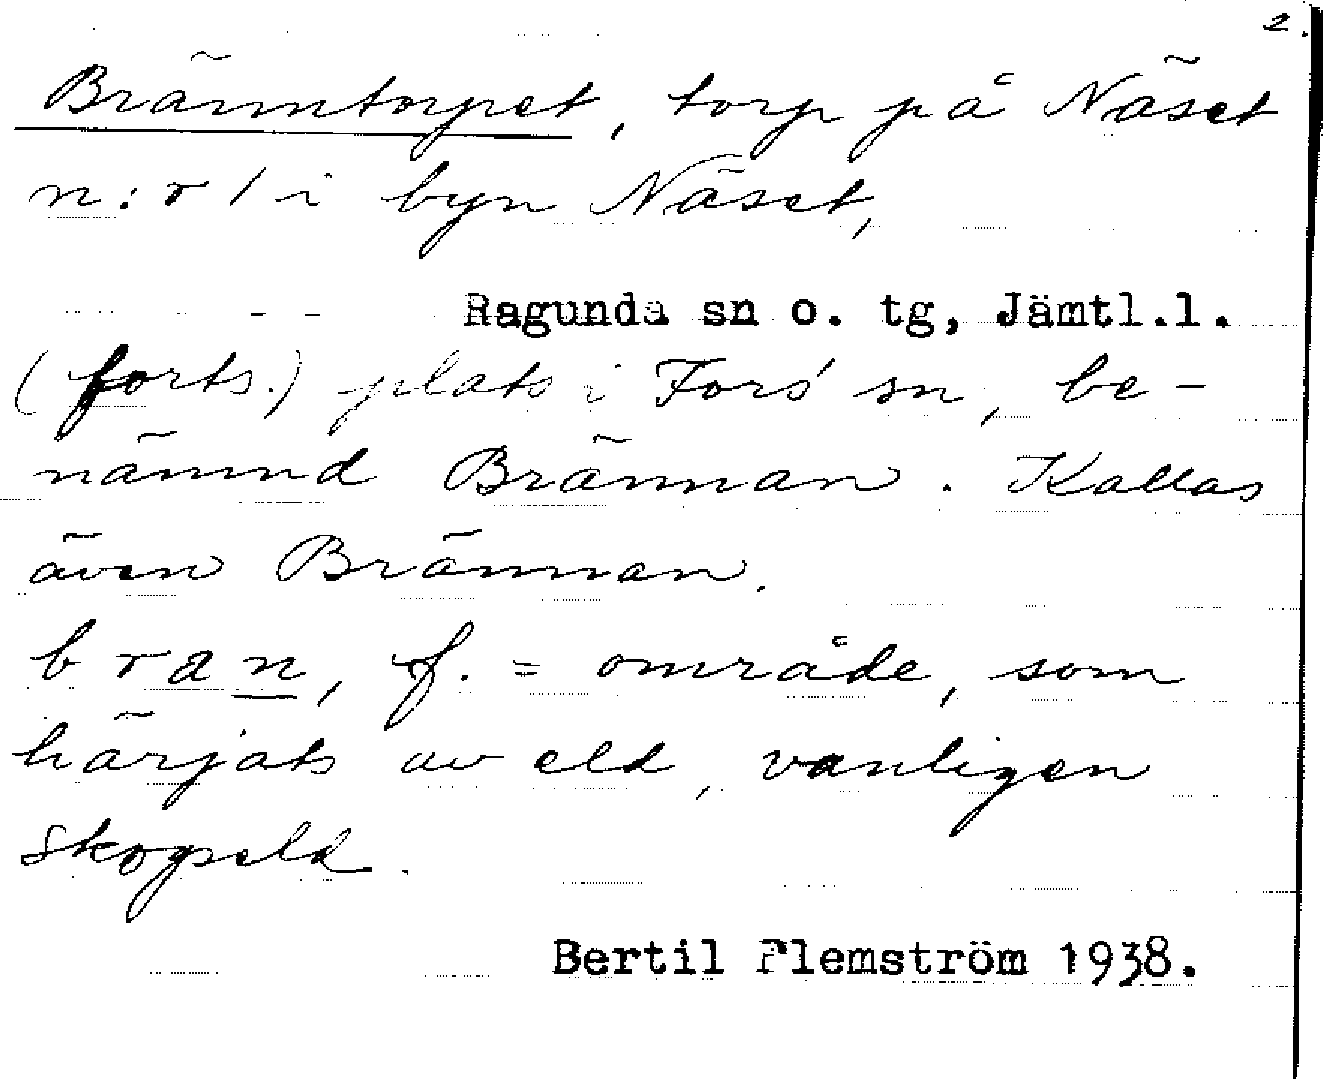 2.
Bränntorpet, torp på Näset
n:r 1 i byn Näset,
Ragunda sn o. tg, Jämtl.l.
(forts.) plats i Fors sn, be-
nämnd Brännan. Kallas
även Brännan.
bran, f. = område, som
härjats av eld, vanligen
skogseld.
Bertil Flemström 1938.